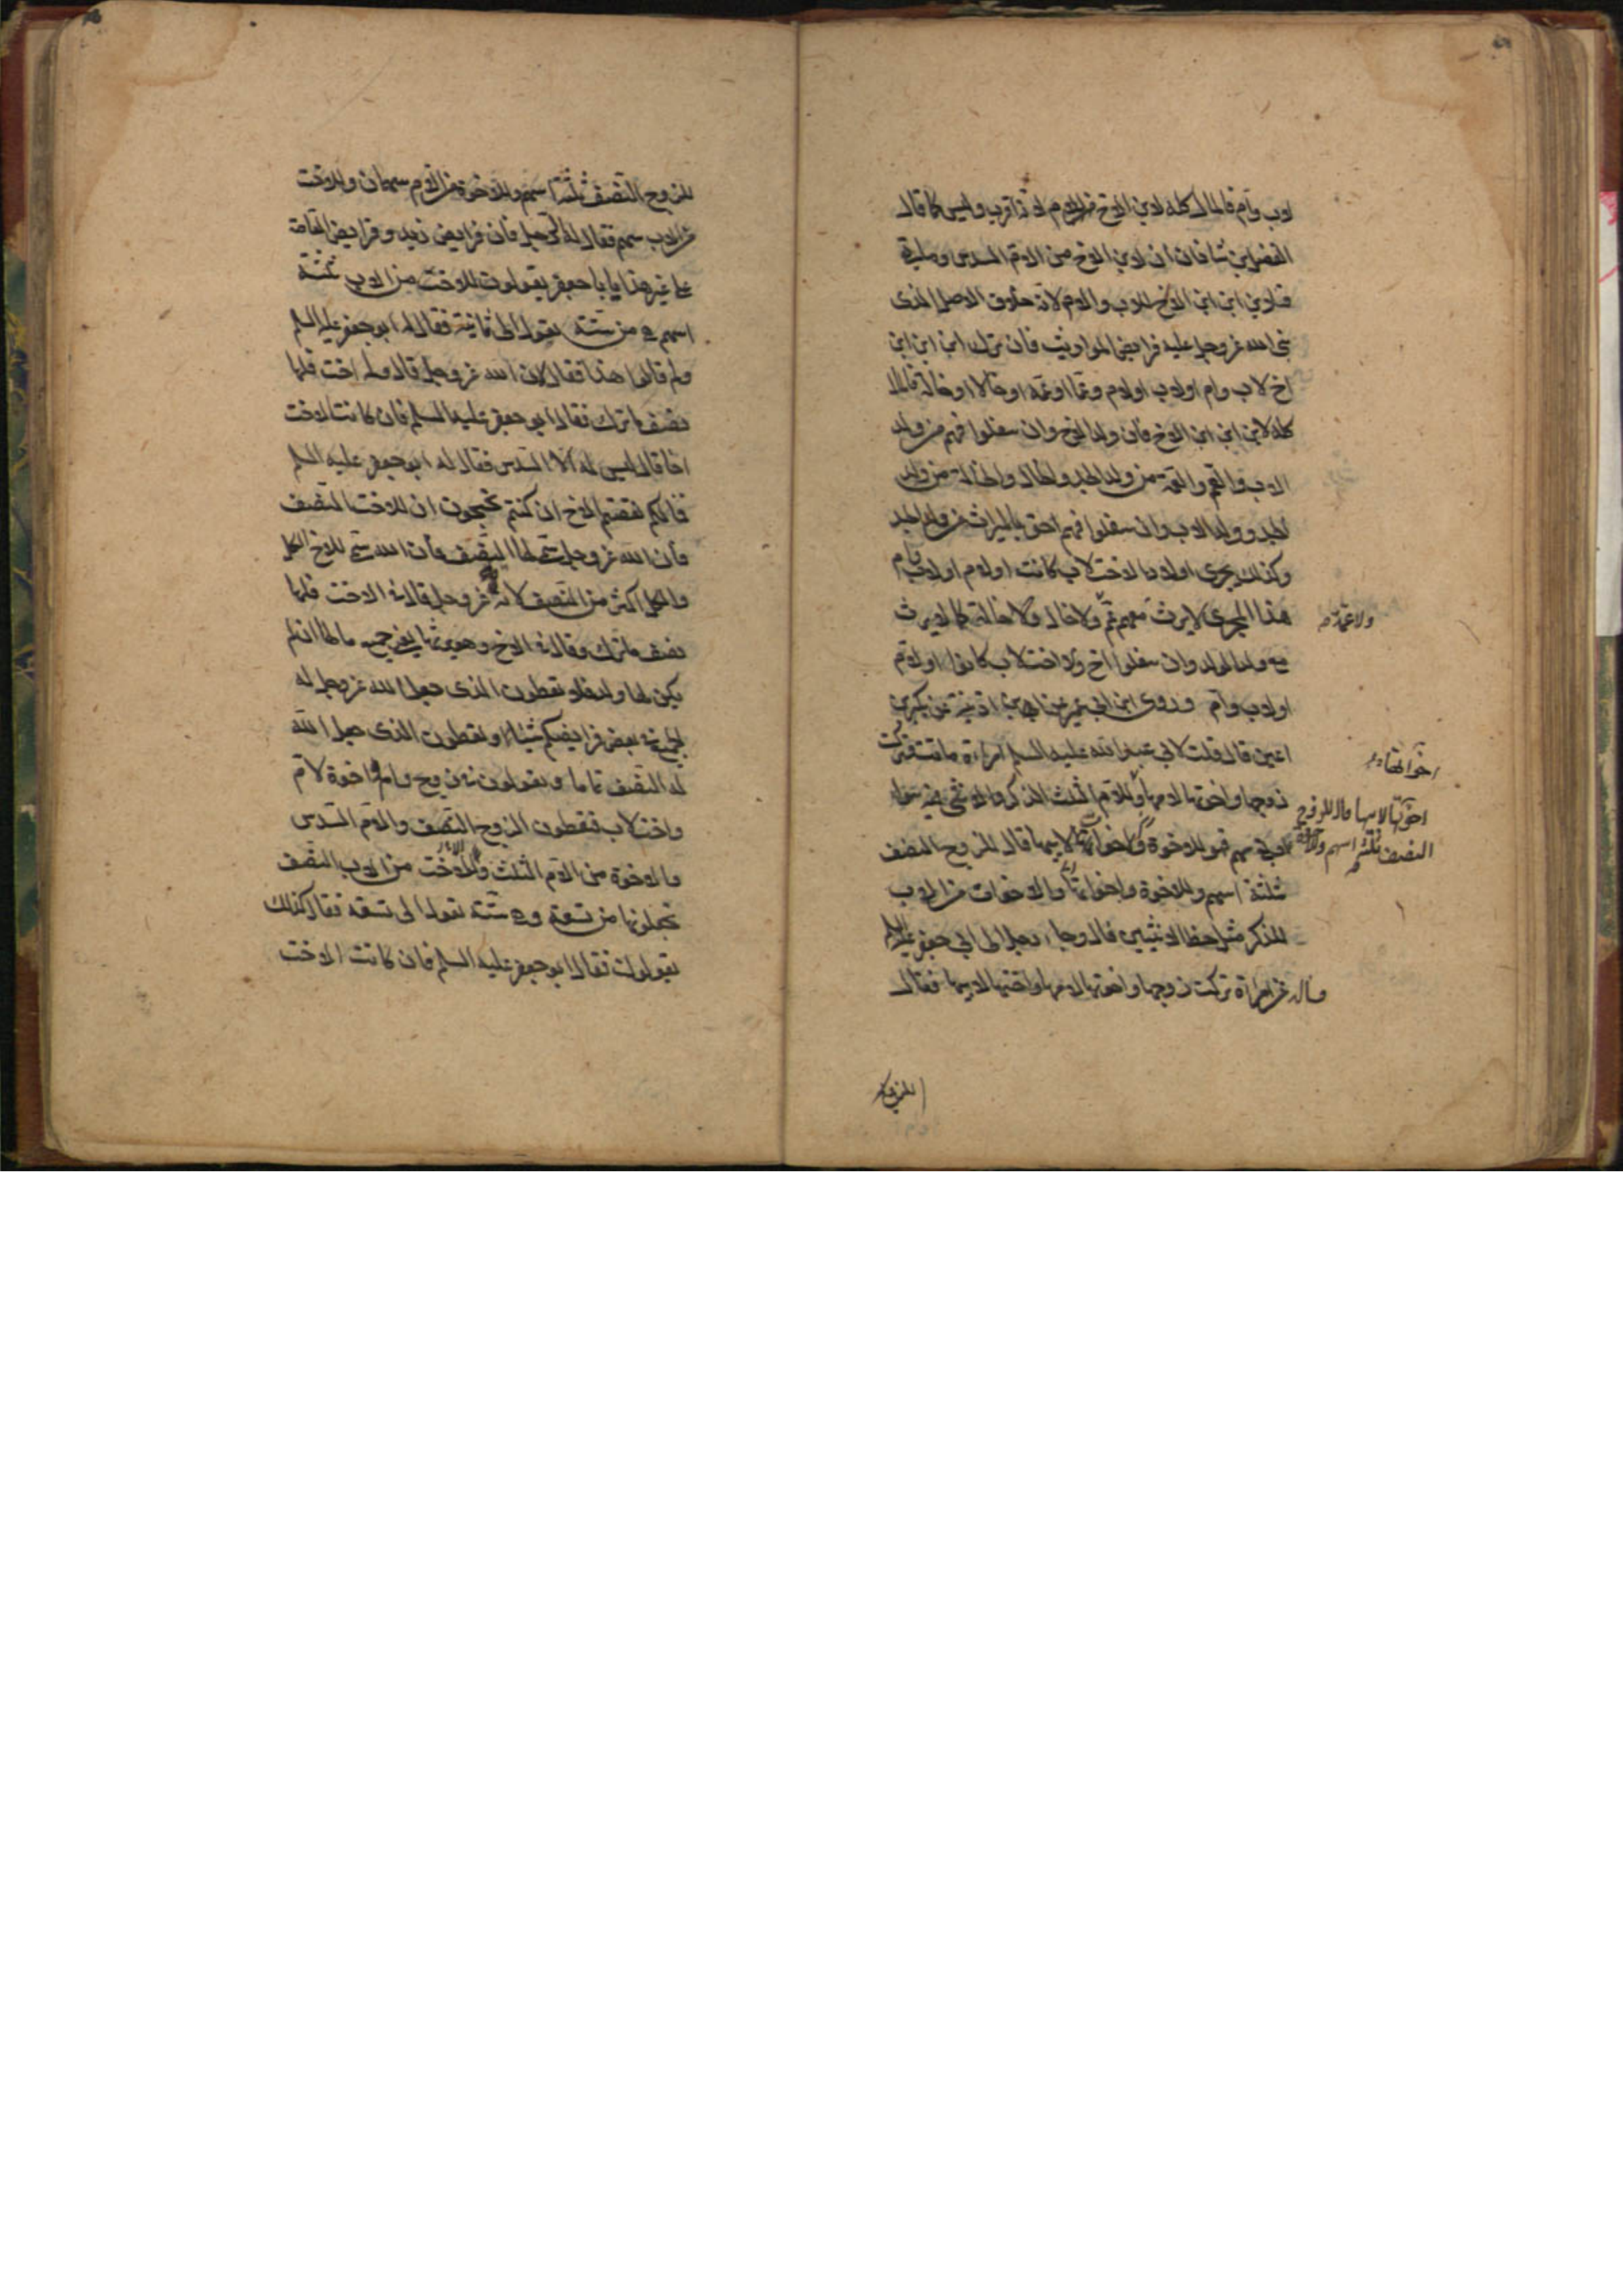 لاب وام فالمال كله لابن الاخ من الام لانه اقرب وليس كما قال
الفضل بن شاذان ان لابن الاخ من الام السدس وما بقى
فلابن ابن ابن الاخ للاب والام لانه خلاف الاصل الذى
بنى الله عز وجل عليه فرايض المواريث فان ترك ابن ابن ابن
اخ لاب وام او لاب او لام وعما او عمة او خالا او خالة فالمال
كله لابن ابن ابن الاخ فان ولد الاخ وان سفلوا فهم من ولد
الاب والعم والعمة من ولد الجد والخال والخالة من ولد
الجد وولد الاب وان سفلوا فهم احق بالميراث من ولد الجد
وكذلك يجرى اولاد الاخت لاب كانت او لام او لاب وام
هذا المجرى لا يرث معهم عم ولا خال ولا خالة كما لا يرث
ولا عمة
مع ولد الولد وان سفلوا اخ ولا اخت لاب كانوا او لام
او لاب وام وروى ابن ابى عمير عن ابن اذينة عن بكير بن
اعين قال قلت لابى عبد الله عليه السلم امراءة ماتت وتركت
زوجها واخوتها لامها وللام الثلث الذكر والانثى فيه سواء
اخواتها لابيها قال للزوج
النصف ثلثة اسهم
سهم فهو للاخوة والاخوات لابيها قال للزوج النصف
ثلثة اسهم وللاخوة واخواتها والاخوات من الاب
للذكر مثل حظ الانثيين قال وجاء رجل الى ابى جعفر عليه السلم
وساله عن امراة تركت زوجها واخوتها لامها واختها لابيها فقال
للزوج
للزوج النصف ثلثة اسهم وللاخوة من الام سهمان وللاخت
من الاب سهم فقال له الرجل فان فرايض زيد وفرايض العامة
على غير هذا يا با جعفر يقولون للاخت من الاب ثلثة
اسهم هى من ستة تعول الى ثمانية فقال له ابو جعفر عليه السلم
ولم قالوا هذا فقال لان الله عز وجل قال وله اخت فلها
نصف ما ترك فقال ابو جعفر عليه السلم فان كانت الاخت
اخا قال ليس له الا السدس فقال له ابو جعفر عليه السلم
فما لكم نقصتم الاخ ان كنتم تحتجون ان للاخت النصف
فان الله عز وجل سمى لها النصف فان الله سمى للاخ الكل
والكل اكثر من النصف لانه عز وجل قال فى الاخت فلها
نصف ما ترك وقال فى الاخ وهو يرثها يعنى جميع مالها ان لم
يكن لها ولد فلا تعطون الذى جعل الله عز وجل له
الجميع فى بعض فرايضكم شيئا وتعطون الذى جعل الله
له النصف تاما ويقولون فى زوج وام واخوة لام
واخت لاب فتعطون الزوج النصف والام السدس
والاخوة من الام الثلث والاخت من الاب النصف
تجعلونها من تسعة وهى ستة تعول الى تسعة فقال كذلك
يقولون فقال ابو جعفر عليه السلم فان كانت الاخت